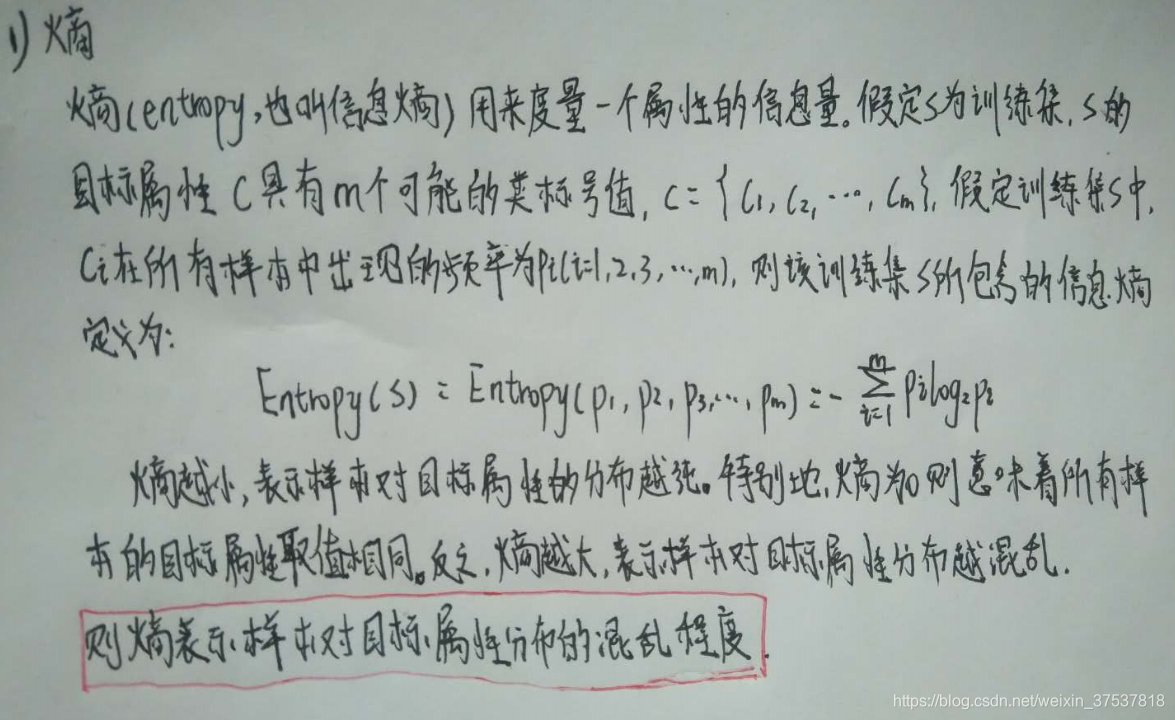 1) 熵
熵(entropy,也叫信息熵)用来度量一个属性的信息量。假定S为训练集,S的
目标属性C具有m个可能的类标号值,C={C1,C2,…,Cm},假定训练集S中,
Ci在所有样本中出现的频率为Pi(i=1,2,3,…,m),则该训练集S所包含的信息熵
定义为:
Entropy(S)=Entropy(p1,p2,p3,…,pm)=-∑_{i=1}^{m} pilog₂pi
熵越小,表示样本对目标属性的分布越纯。特别地,熵为0则意味着所有样
本的目标属性取值相同。反之,熵越大,表示样本对目标属性分布越混乱.
则熵表示样本对目标属性分布的混乱程度.
https://blog.csdn.net/weixin_37537818